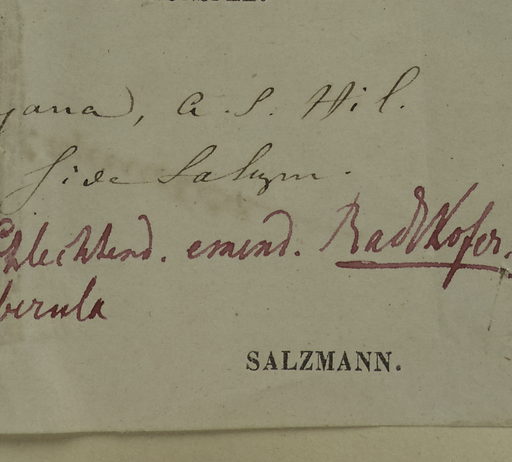 yana, A. S. Hil.
fide Salzm.
Schlechtend. emend. Radlkofer.
berula
SALZMANN.